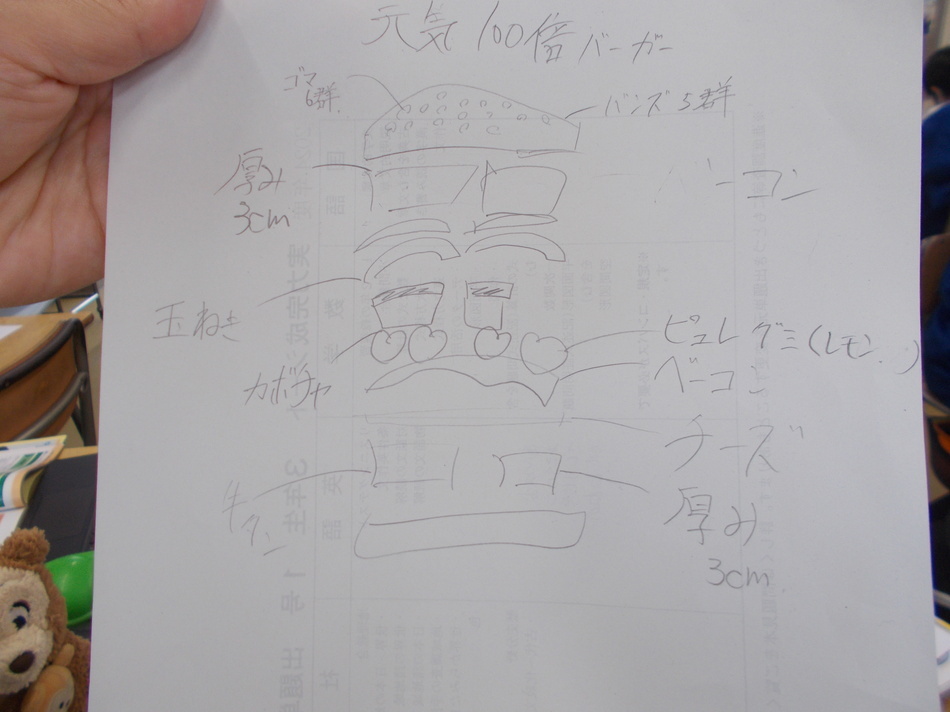 元気100倍バーガー
ゴマ
6群
バンズ5群
厚み
3cm
ーコン
玉ねぎ
ピュレグミ(レモン)
カボチャ
ベーコン
チーズ
牛
タン
厚み
3cm